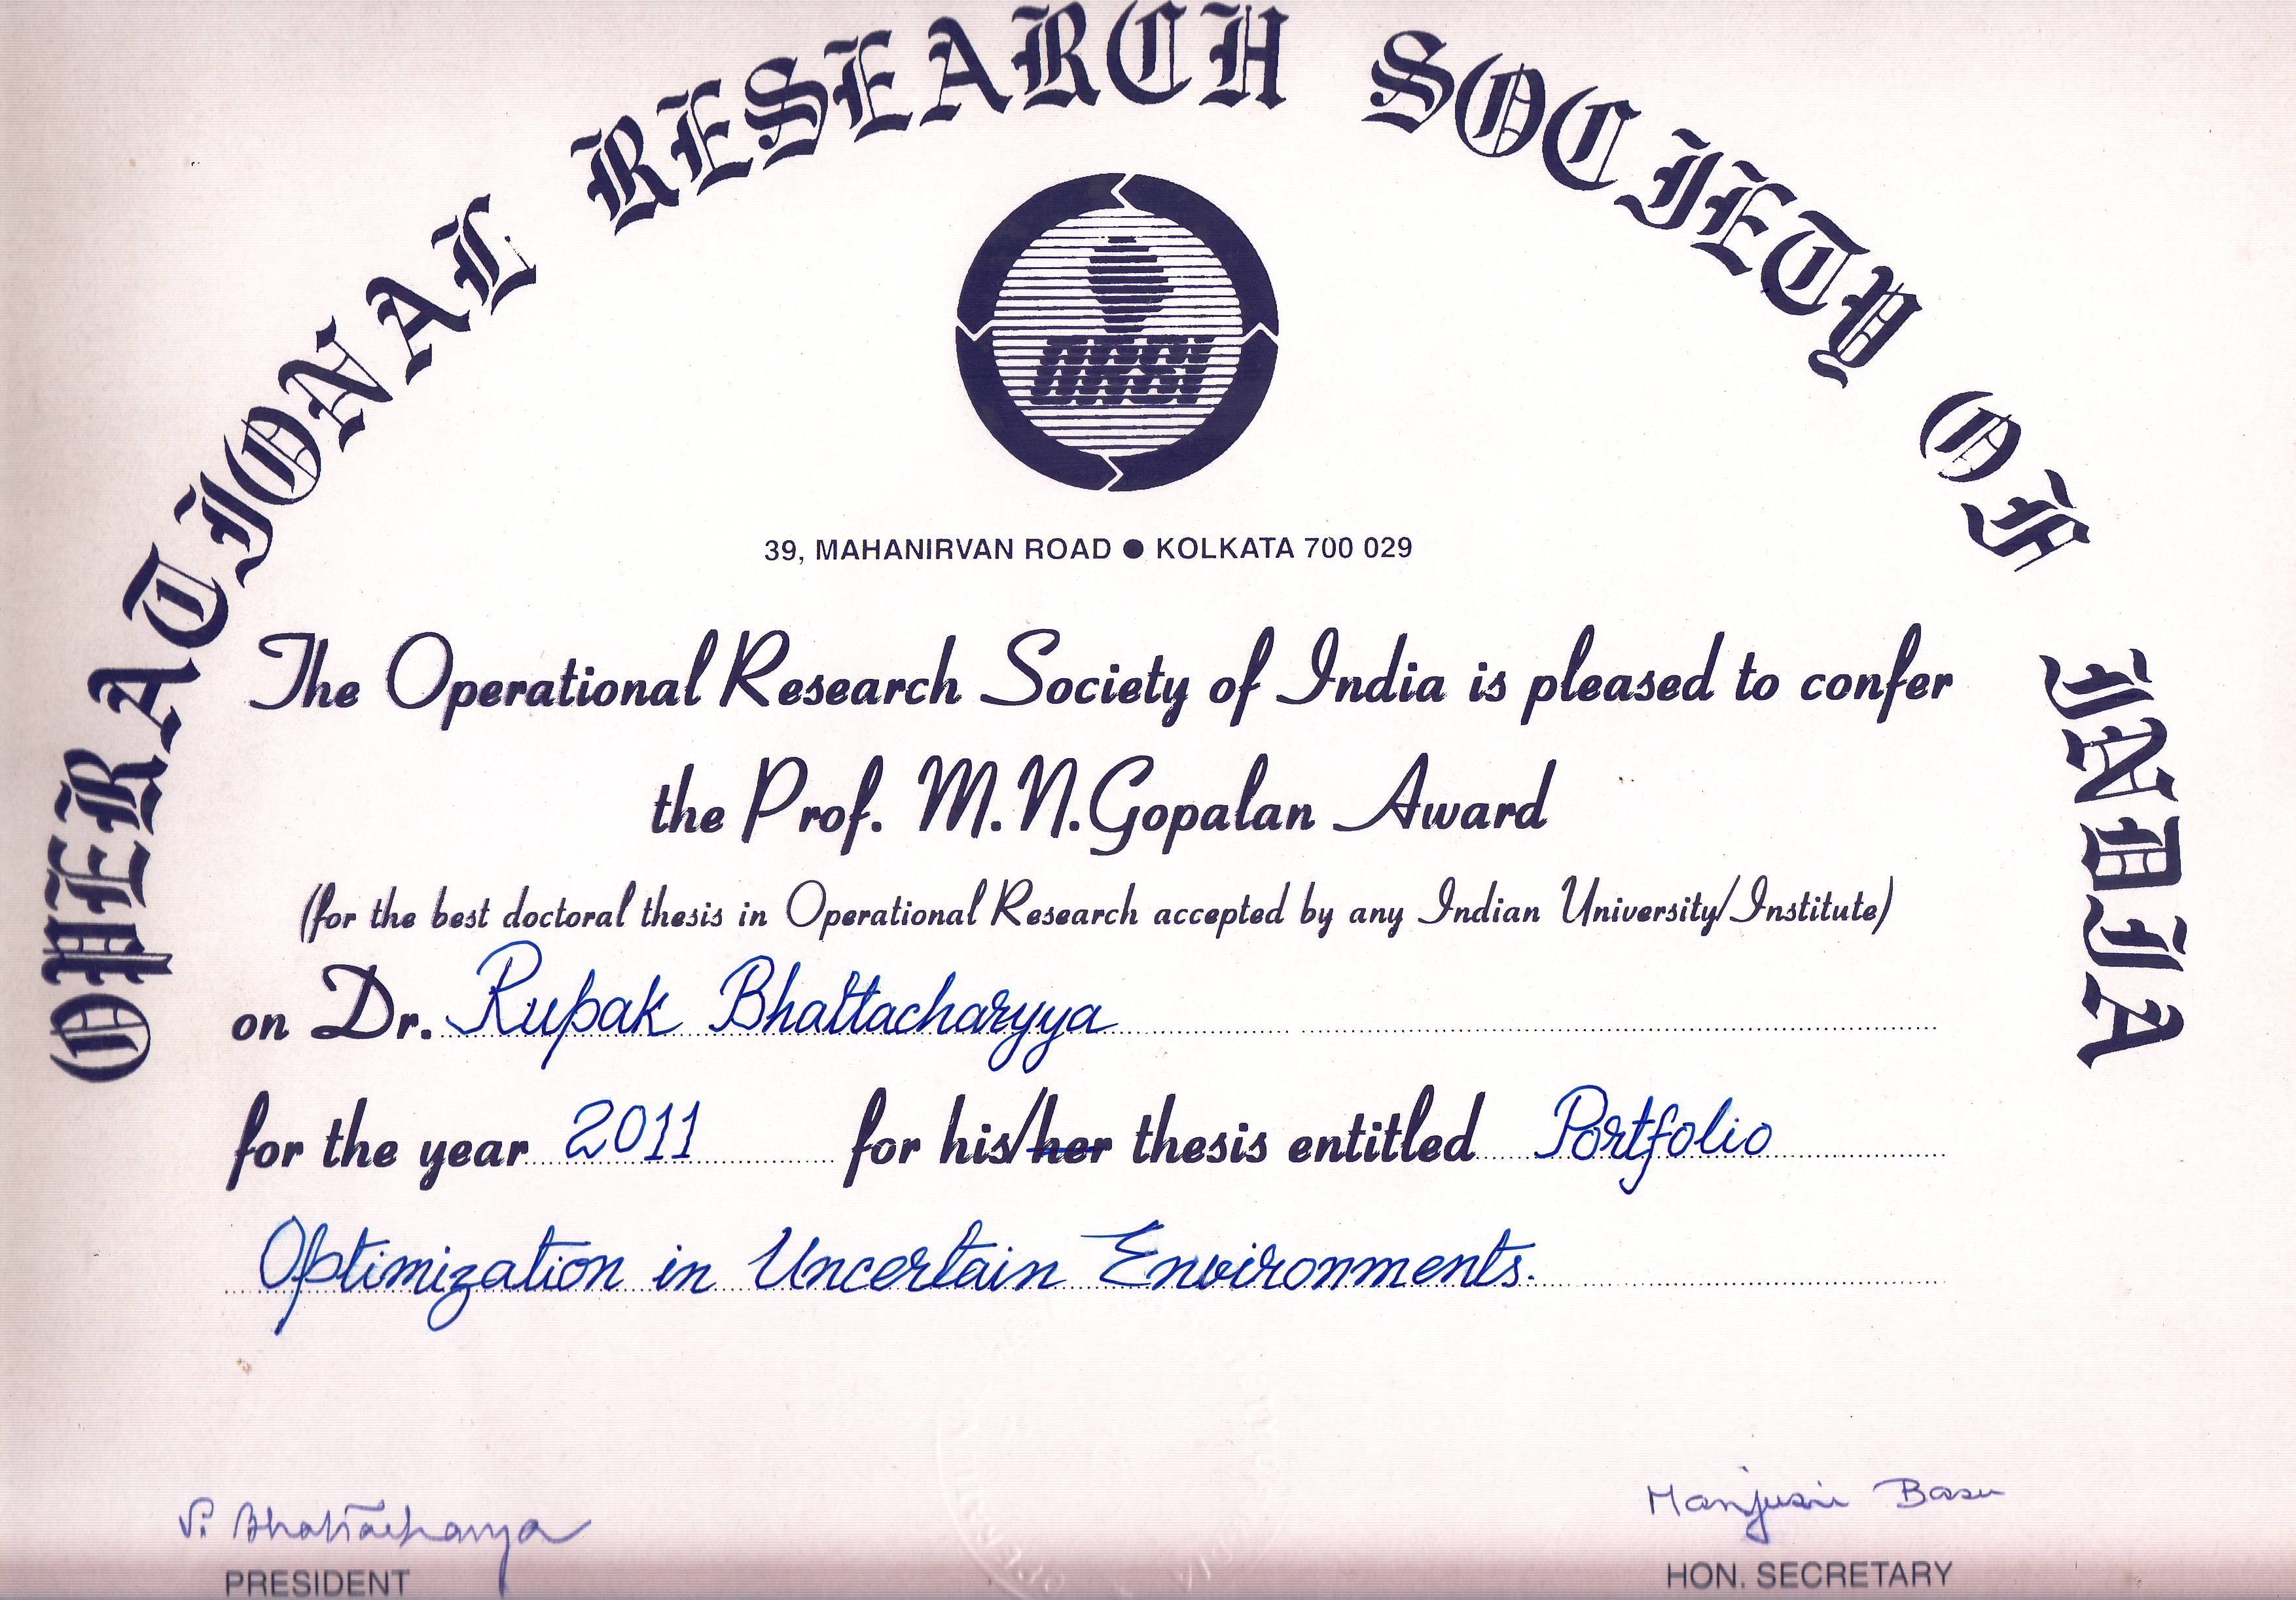 OPERATIONAL RESEARCH SOCIETY OF INDIA
ORSI
39, MAHANIRVAN ROAD ● KOLKATA 700 029
The Operational Research Society of India is pleased to confer
the Prof. M.N.Gopalan Award
(for the best doctoral thesis in Operational Research accepted by any Indian University/Institute)
on Dr. Rupak Bhattacharyya
for the year 2011 for his/her thesis entitled Portfolio
Optimization in Uncertain Environments.
Manjusri Basu
PRESIDENT
HON. SECRETARY